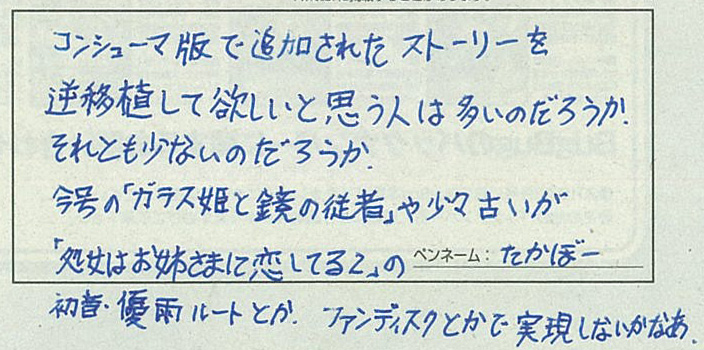 コンシューマ版で追加されたストーリーを
逆移植して欲しいと思う人は多いのだろうか.
それとも少ないのだろうか.
今号の「ガラス姫と鏡の従者」や少々古いが
「処女はお姉さまに恋してる2」の
ペンネーム：たかぼー
初音・優雨ルートとか. ファンディスクとかで実現しないかなあ.